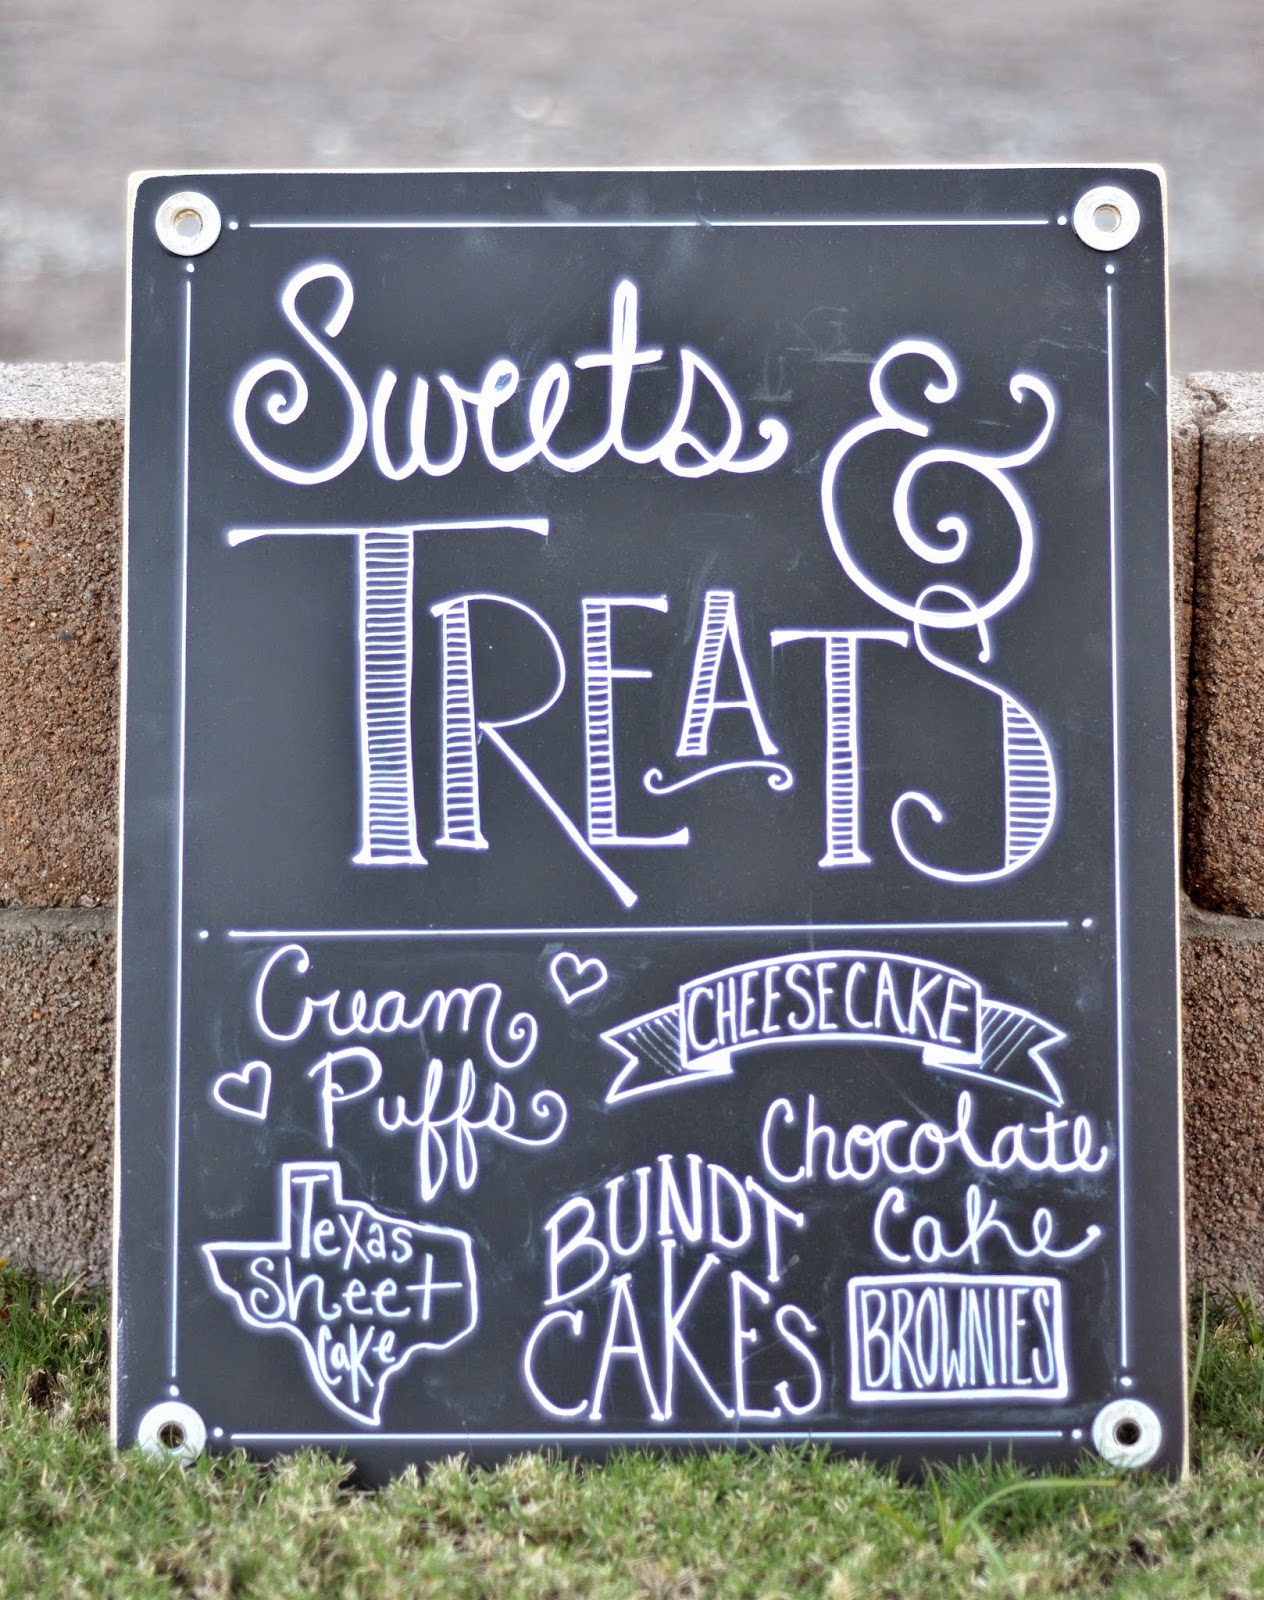 Sweets &
TREATS
Cream
Puffs
CHEESECAKE
Chocolate
Cake
Texas
Sheet
Cake
BUNDT
CAKES
BROWNIES